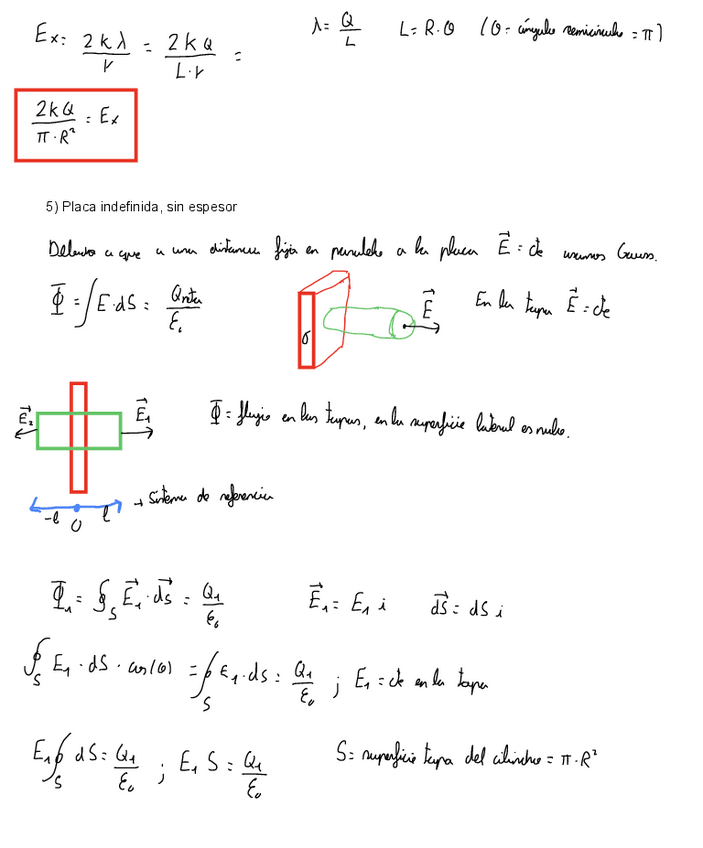 Ex = 2kλ/r = 2kQ/L·r =     λ = Q/L     L = R·θ     (θ = ángulo semicírculo = π)
2kQ/π·R² = Ex
5) Placa indefinida, sin espesor
Debido a que a una distancia fija en paralelo a la placa E⃗ = cte usamos Gauss.
Φ = ∫E·dS = Qneta/ε₀     σ     E⃗     En la tapa E⃗ = cte
E⃗₂     E⃗₁     Φ = flujo en las tapas, en la superficie lateral es nulo.
-l     0     l     → Sistema de referencia
Φ₁ = ∮S E⃗₁·dS⃗ = Q₁/ε₀     E⃗₁ = E₁ i     dS⃗ = dS i
∮S E₁·dS·cos(0) = ∮S E₁·dS = Q₁/ε₀ ; E₁ = cte en la tapa
E₁∮S dS = Q₁/ε₀ ; E₁ S = Q₁/ε₀     S = superficie tapa del cilindro = π·R²